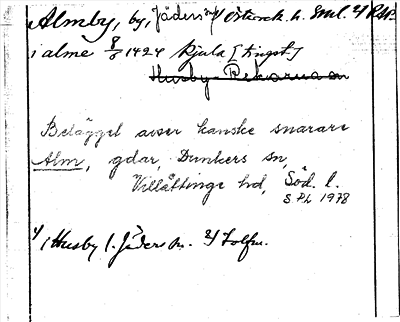 Almby, by, Jäders sn, Österrek. h. Sml. 4) RAP.
i alme 8/8 1424 Kjula [tingst.]
Husby-Rekarne sn
Belägget avser kanske snarare
Alm, gdar, Dunkers sn,
Villåttinge hd, Söd. l.
SPL 1978
1) Husby l. Jäders sn. 2)